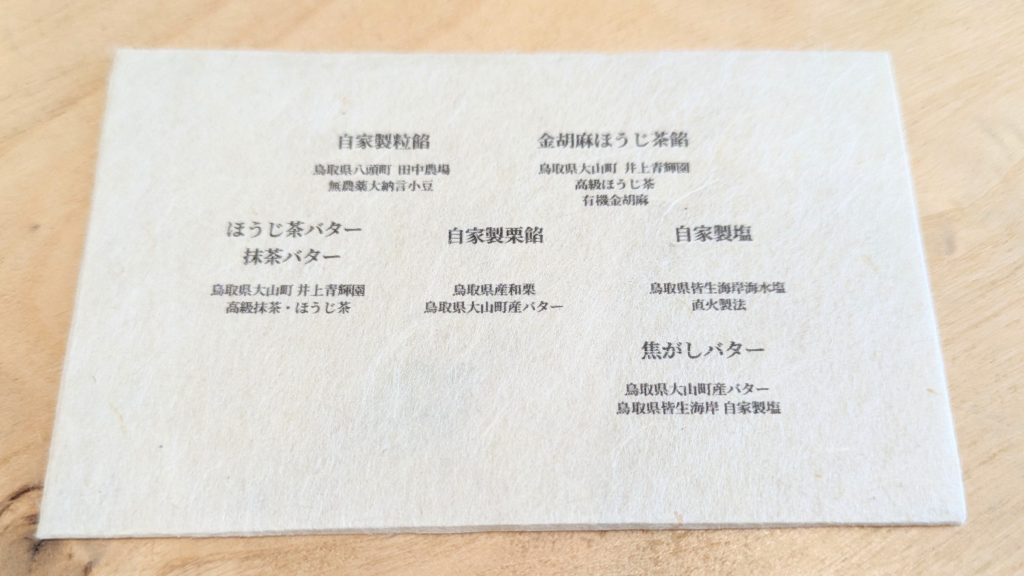 自家製粒餡
鳥取県八頭町 田中農場
無農薬大納言小豆
金胡麻ほうじ茶餡
鳥取県大山町 井上青輝園
高級ほうじ茶
有機金胡麻
ほうじ茶バター
抹茶バター
鳥取県大山町 井上青輝園
高級抹茶・ほうじ茶
自家製栗餡
鳥取県産和栗
鳥取県大山町産バター
自家製塩
鳥取県皆生海岸海水塩
直火製法
焦がしバター
鳥取県大山町産バター
鳥取県皆生海岸 自家製塩